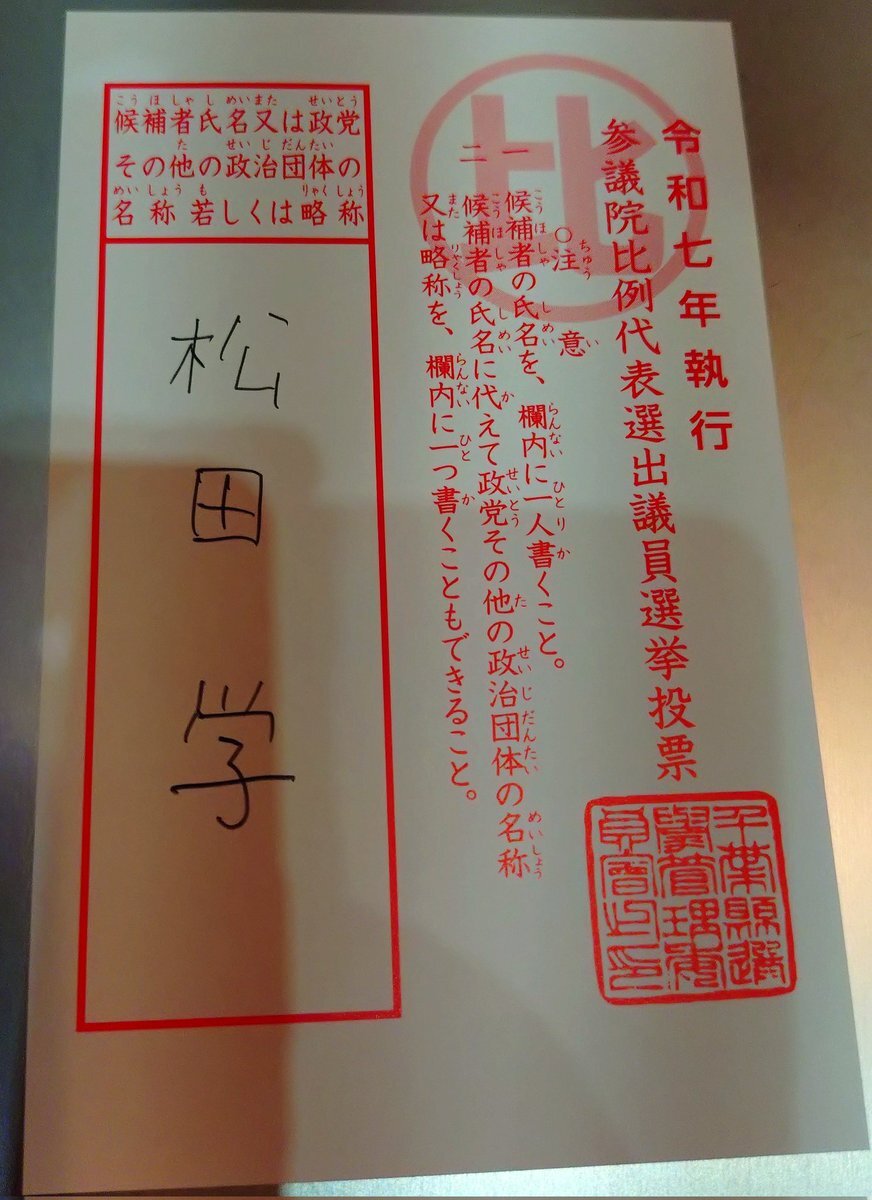 令和七年執行
参議院比例代表選出議員選挙投票
比
○注意
一 候補者の氏名を、欄内に一人書くこと。
二 候補者の氏名に代えて政党その他の政治団体の名称
又は略称を、欄内に一つ書くこともできること。
千葉縣選
擧管理委
員會之印
候補者氏名又は政党
その他の政治団体の
名称若しくは略称
松田学